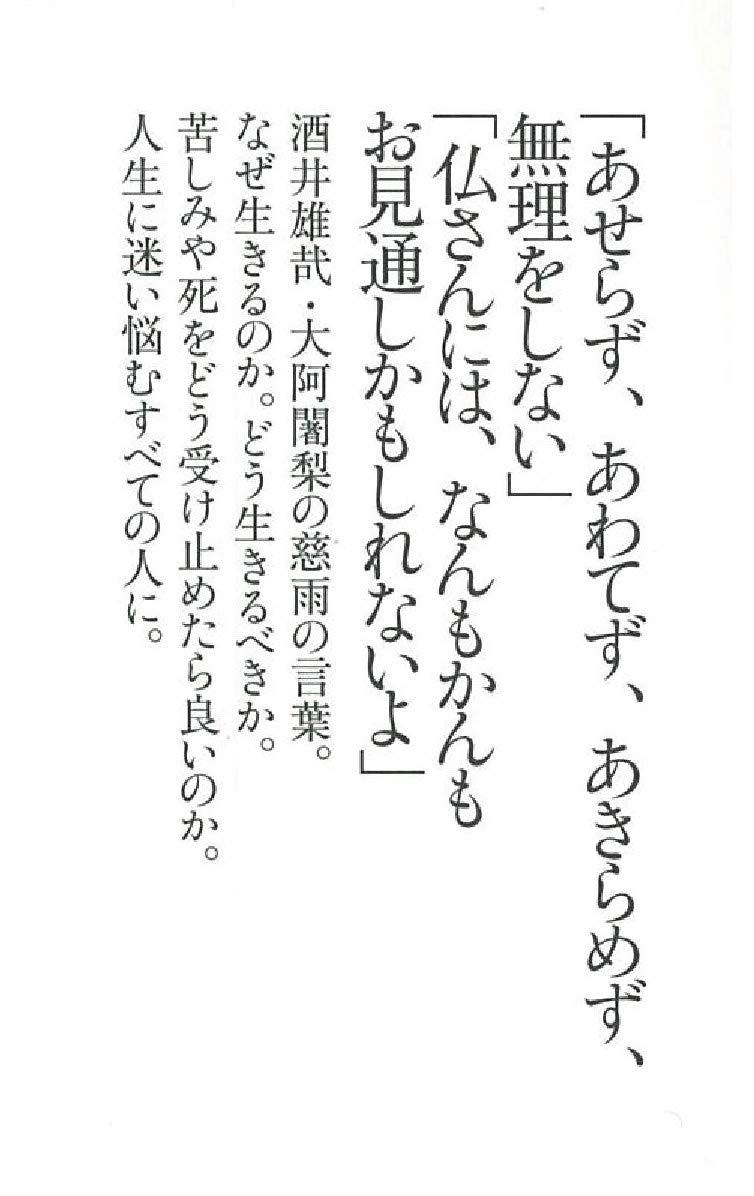 「あせらず、あわてず、あきらめず、
無理をしない」
「仏さんには、なんもかんも
お見通しかもしれないよ」
酒井雄哉・大阿闍梨の慈雨の言葉。
なぜ生きるのか。どう生きるべきか。
苦しみや死をどう受け止めたら良いのか。
人生に迷い悩むすべての人に。